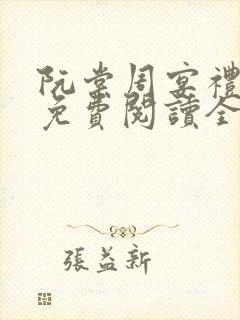 阮棠周宴禮
免費閱讀全
張益新